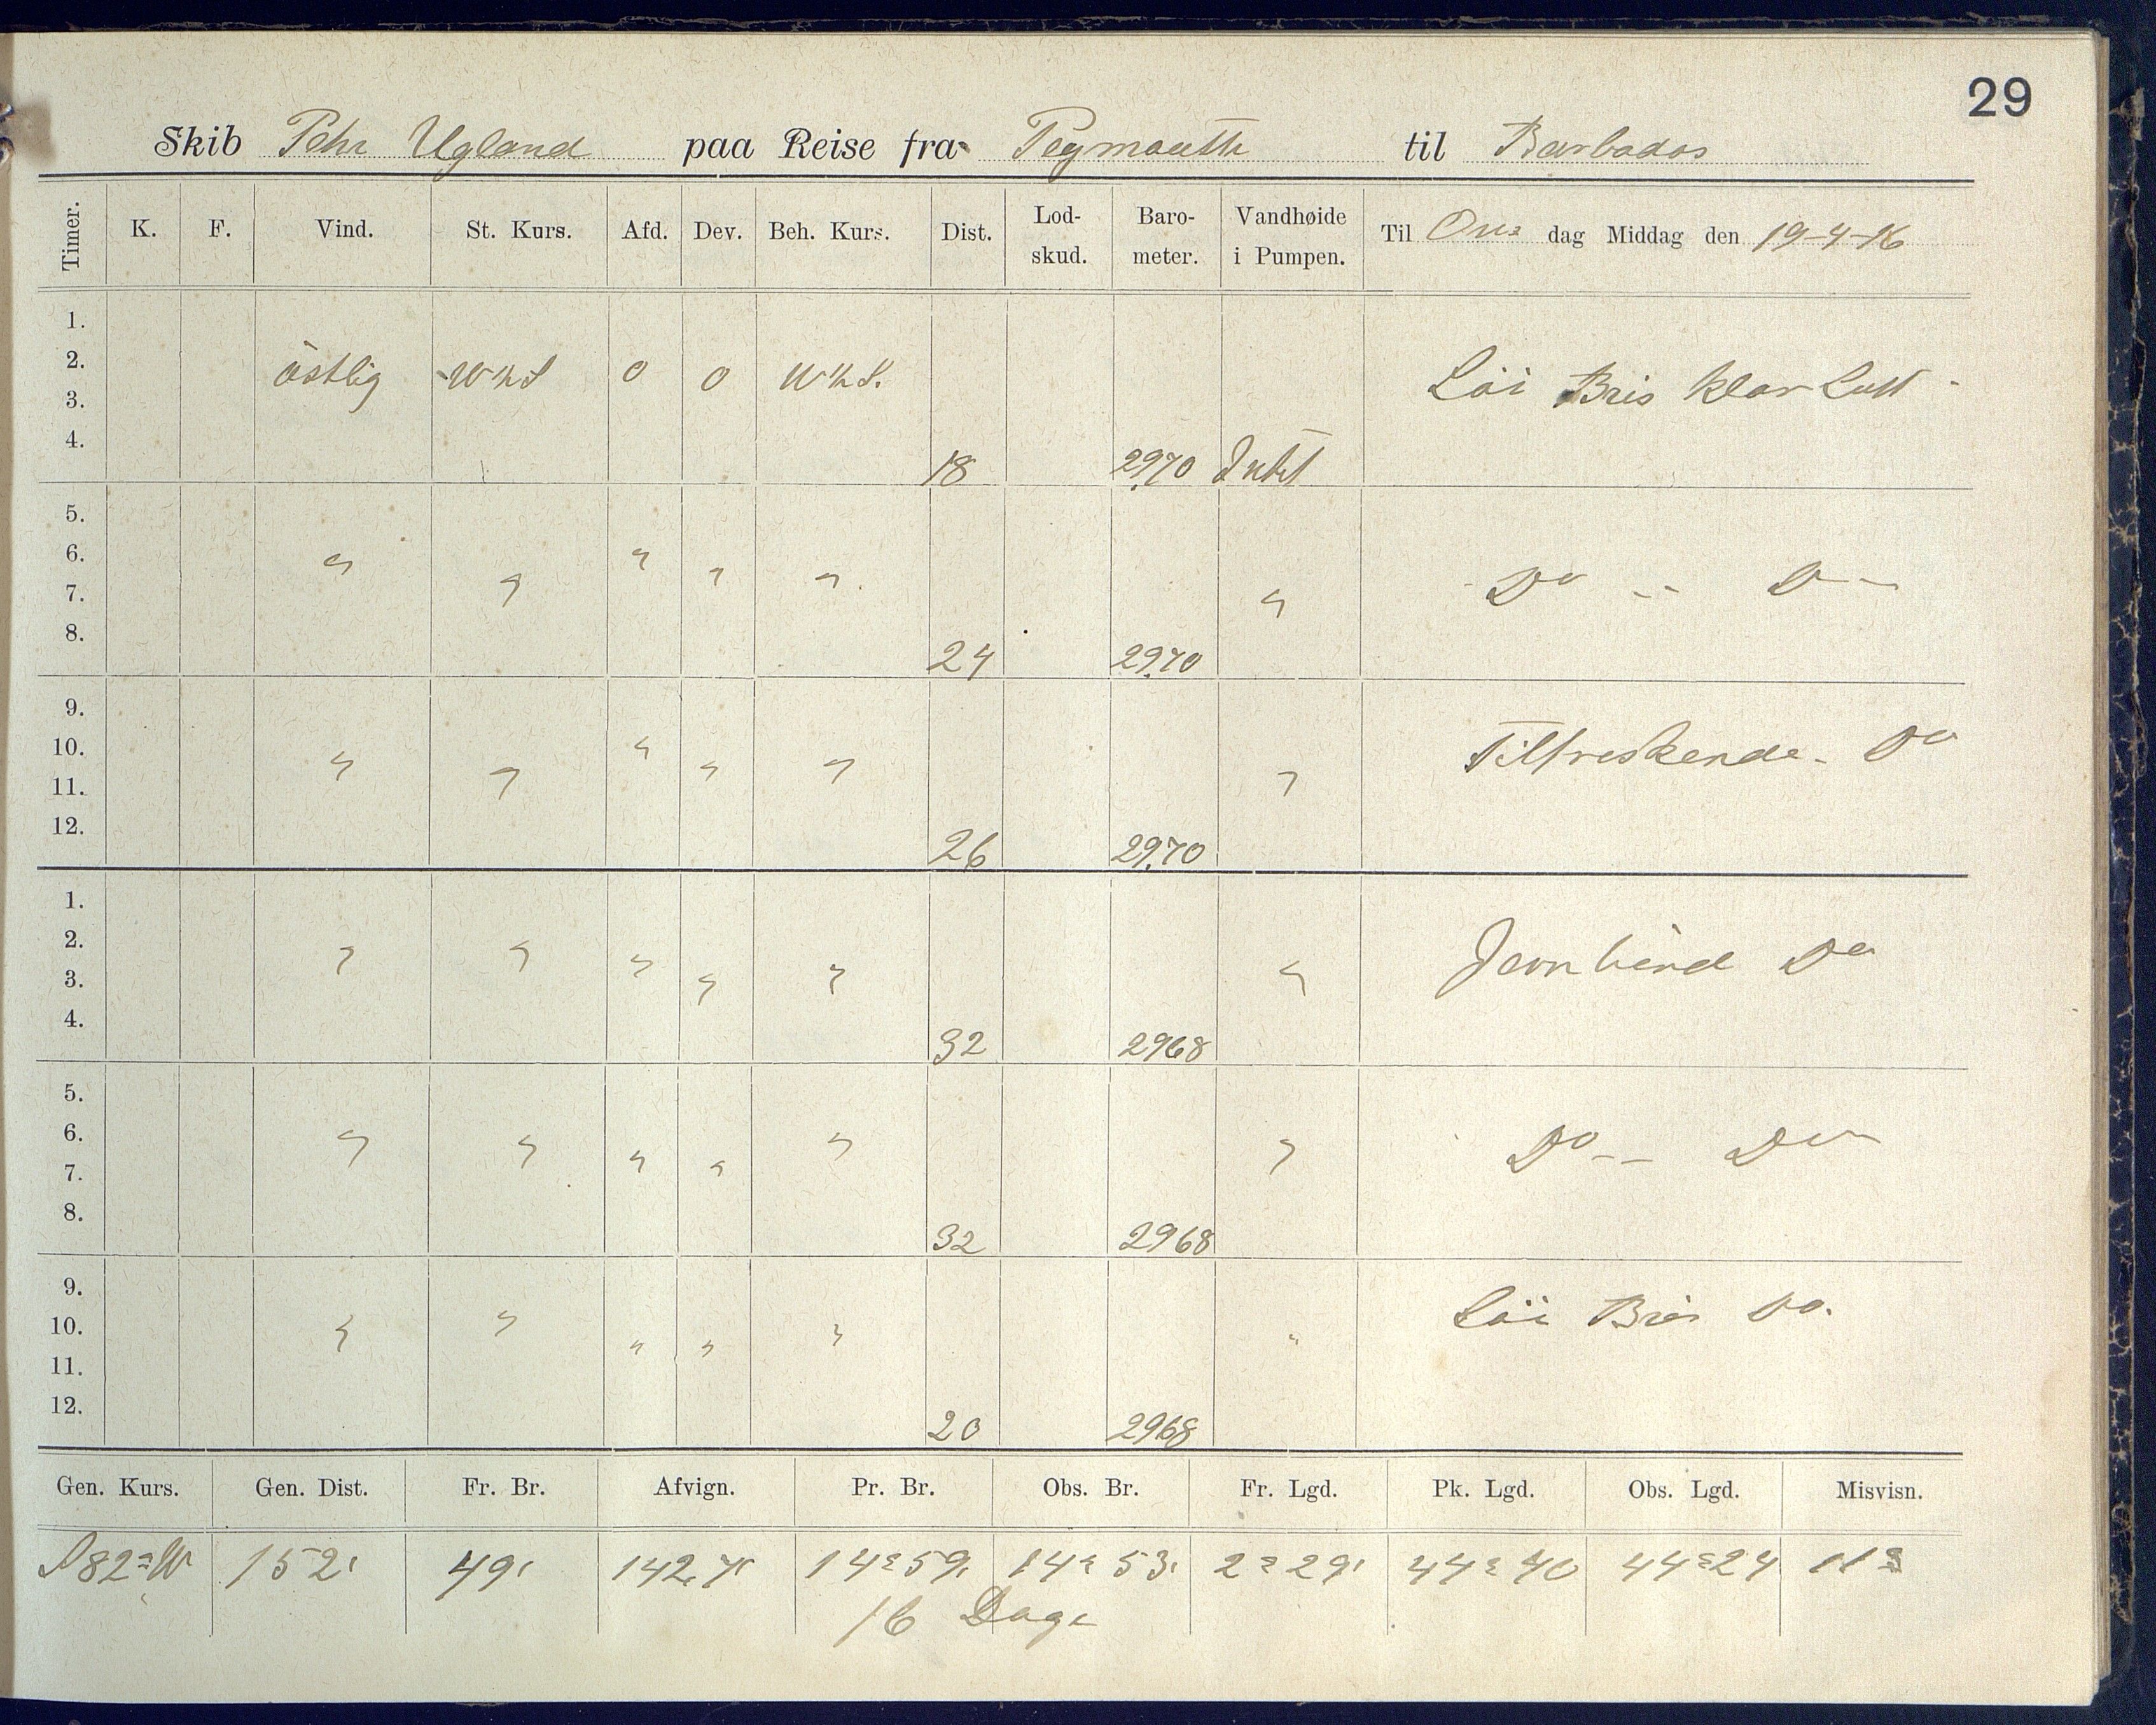 29
Skib Pehr Ugland paa Reise fra Teymouth til Barbados
Timer. K. F. Vind. St. Kurs. Afd. Dev. Beh. Kurs. Dist. Lod-skud. Baro-meter. Vandhøide i Pumpen. Til Ons dag Middag den 19-4-16
1.
2. östlig WhS 0 0 WhS. Löi Bris klar Luft -
3.
4. 18 29.70 Intet
5.
6. " " " " " " Do -- D--
7.
8. 24 29.70
9.
10. " " " " " " Tilfreskende - Do
11.
12. 26 29.70
1.
2. " " " " " " Jevn Vind Do
3.
4. 32 2968
5.
6. " " " " " " Do -- Do
7.
8. 32 2968
9.
10. " " " " " " Löi Bris Do.
11.
12. 20 2968
Gen. Kurs. Gen. Dist. Fr. Br. Afvign. Pr. Br. Obs. Br. Fr. Lgd. Pk. Lgd. Obs. Lgd. Misvisn.
S82°W 152' 49' 142,7' 14°59' 14°53' 2°29' 44°40 44°24 11°
16 Dage